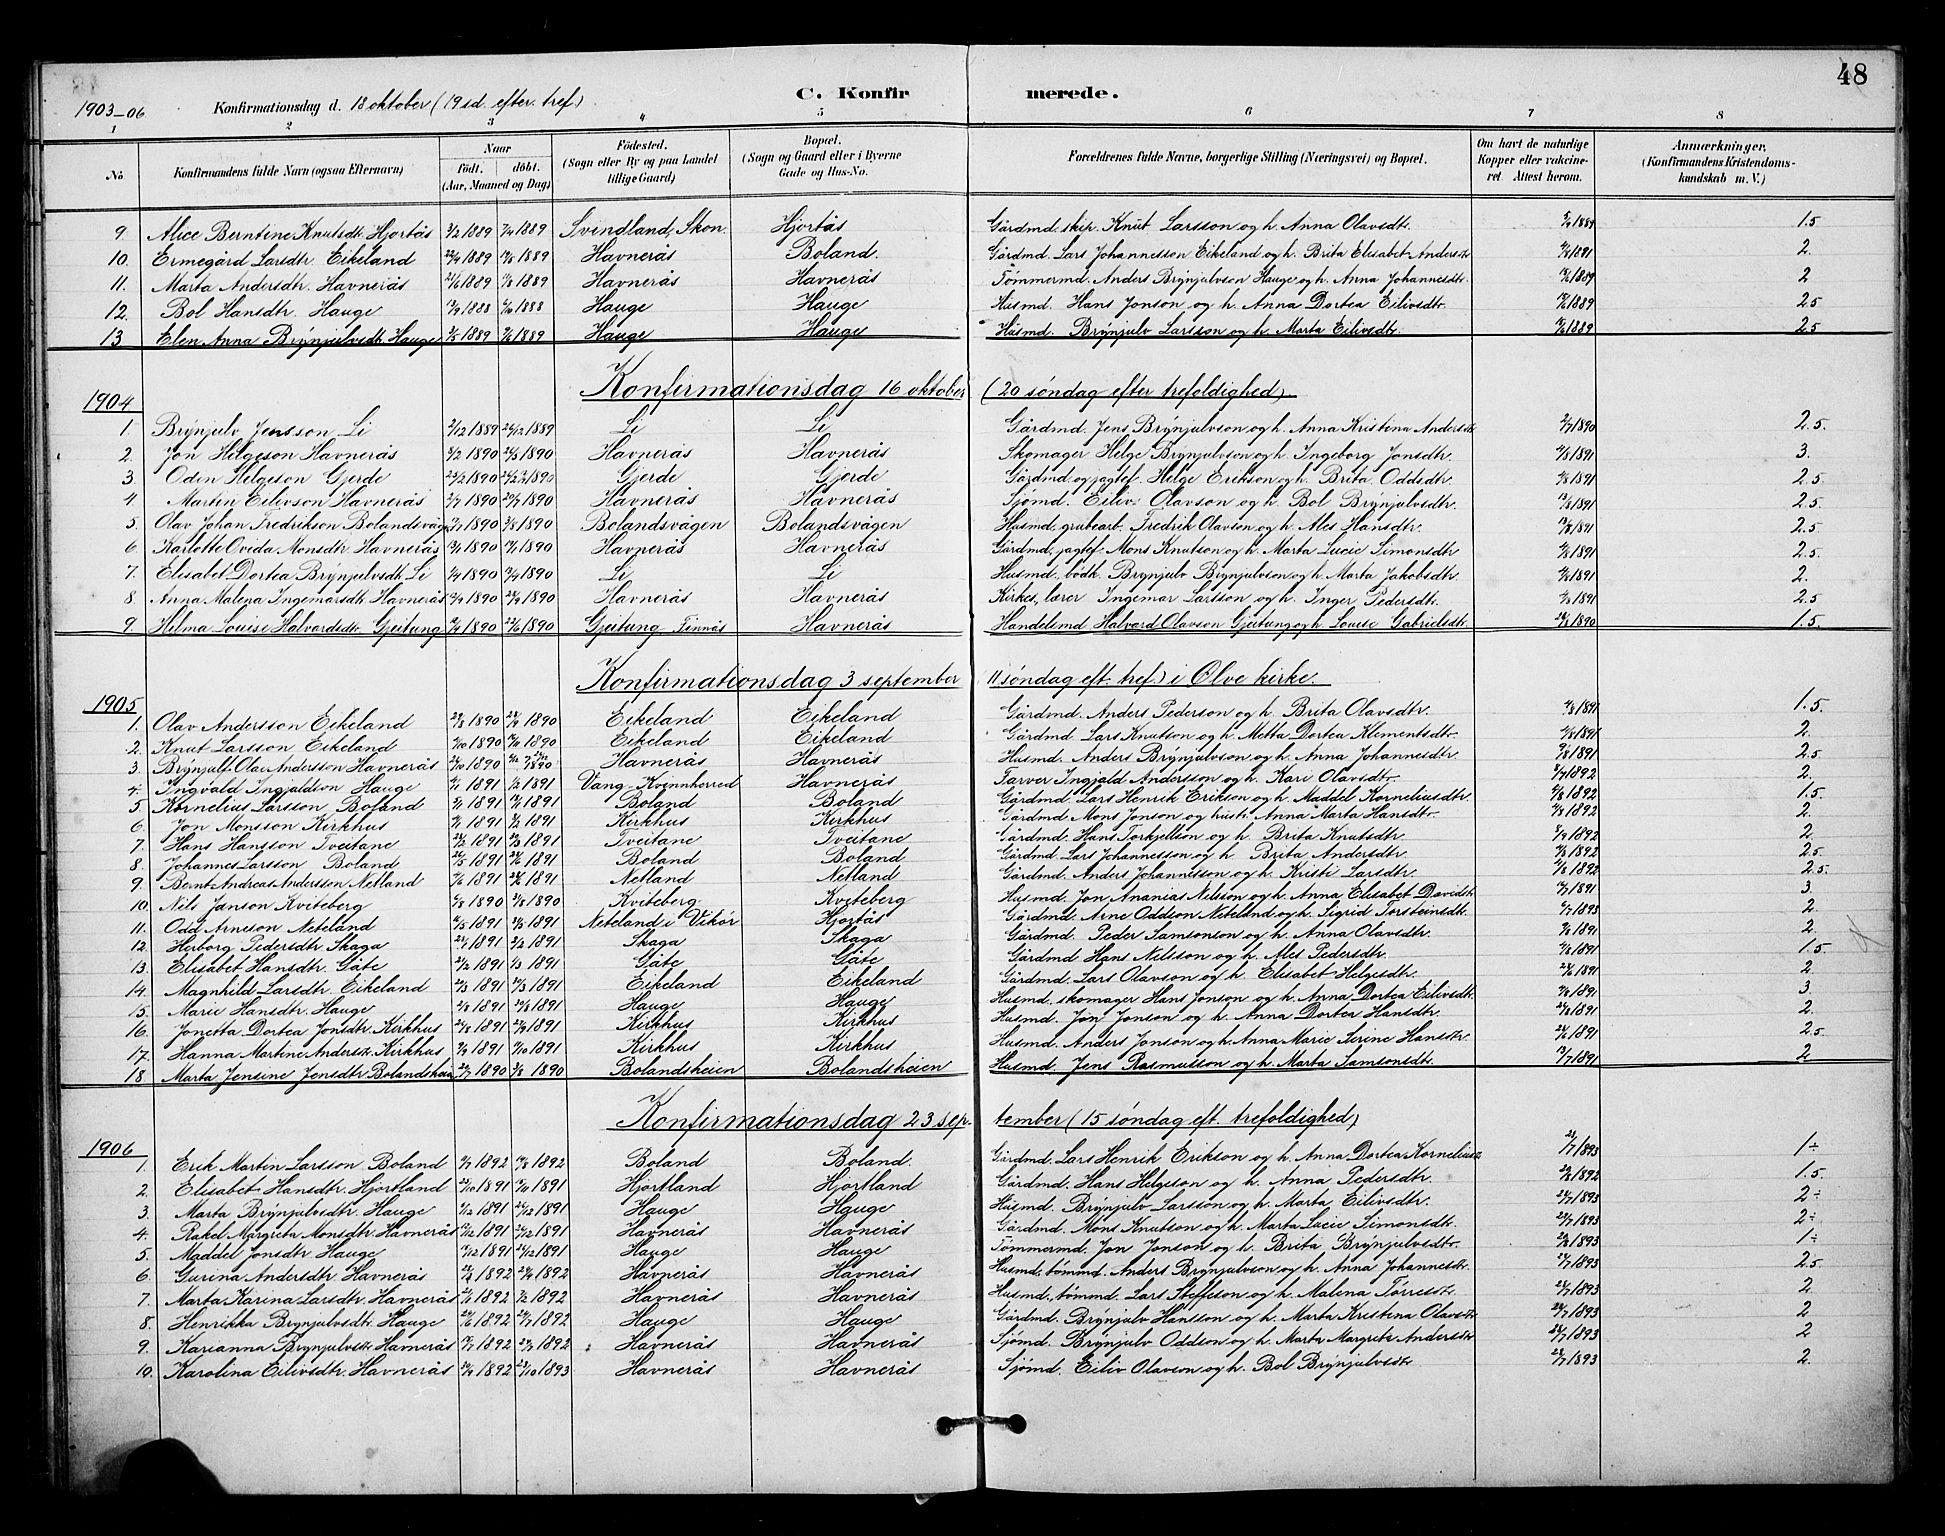 48
1903-06 Konfirmationsdag d. 18 oktober (19 sd. efter tref.) C. Konfirmerede.
1 2 3 4 5 6 7 8
No. Konfirmandens fulde Navn (ogsaa Efternavn) Naar født. døbt. (Aar, Maaned og Dag) Fødested. (Sogn eller By og paa Landet tillige Gaard) Bopæl. (Sogn og Gaard eller i Byerne Gade og Hus-No. Forældrenes fulde Navne, borgerlige Stilling (Næringsvei) og Bopæl. Om havt de naturlige Kopper eller vaccineret. Attest herom. Anmærkninger. (Konfirmandens Kristendomskundskab m. V.)
9. Alice Berntine Knutsdtr. Hjortås 1889 1889 Svindland, Skon. Hjortås Gårdmd. skip. Knut Larsson og h. Anna Olavsdtr. 1889 1.5
10. Ermegård Larsdtr. Eikeland 1889 1889 Havnerås Boland. Gårdmd. Lars Johannesson Eikeland og h. Brita Elisabet Andersdtr. 1891 2.
11. Marta Andersdtr. Havnerås 1889 1889 Havnerås Havnerås Tømmermd. Anders Brynjulvson Hauge og h. Anna Johannesdtr. 1889 2
12. Bol Hansdtr. Hauge 1888 1888 Hauge Hauge Husmd. Hans Jonson og h. Anna Dortea Eilivsdtr. 1889 2.5
13. Elen Anna Brynjulvsdtr. Hauge 1889 1889 Hauge Hauge Husmd. Brynjulv Larsson og h. Marta Eilivsdtr. 1889 2.5
Konfirmationsdag 16 oktober (20 søndag efter trefoldighed).
1904
1. Brynjulv Jensson Li 1889 1889 Li Li Gårdmd. Jens Brynjulvson og h. Anna Kristina Andersdtr 1890 2.5.
2. Jon Helgeson Havnerås 1890 1890 Havnerås Havnerås Skomager Helge Brynjulvson og h. Ingeborg Jonsdtr. 1891 3.
3. Odin Helgeson Gjerde 1890 1890 Gjerde Gjerde Gårdmd og jagtef. Helge Erikson og h. Brita Oddsdtr. 1891 2.5
4 Martin Eilivson Havnerås 1890 1890 Havnerås Havnerås Sjømd. Eiliv Olavson og h. Bol Brynjulvsdtr. 1891 2.5.
5. Olav Johan Fredrikson Bolandsvåg 1890 1890 Bolandsvågen Bolandsvågen Husmd. grubearb. Fredrik Olavson og h. Ales Hansdtr. 1891 2.5
6. Karlotte Ovida Monsdtr. Havnerås 1890 1890 Havnerås Havnerås Gårdmd., jagtef. Mons Knutson og h. Marta Lucie Simonsdtr 1891 2.5.
7. Elisabet Dortea Brynjulvsdtr. Li 1890 1890 Li Li Husmd. bødk. Brynjulv Brynjulvson og h. Marta Jakobsdtr. 1891 2.
8. Anna Malena Ingemarsdtr. Havnerås 1890 1890 Havnerås Havnerås Kirkes., lærer Ingemar Larsson og h. Inger Pedersdtr. 1891 2.5
9. Hilma Louise Halvardsdtr. Gjeitung 1890 1890 Gjeitung Finnås Havnerås Handelsmd Halvard Olavson Gjeitung og h. Louise Gabrielsdtr. 1890 1.5.
Konfirmationsdag 3 september 11 søndag eft. tref.) i Ølve kirke.
1905
1. Olav Andersson Eikeland 1890 1890 Eikeland Eikeland Gårdmd. Anders Pederson og h. Brita Olavsdtr. 1891 1.5.
2. Knut Larsson Eikeland 1890 1890 Eikeland Eikeland Gårdmd Lars Knutson og h. Metta Dortea Klementsdtr. 1891 2.
3. Brynjulf Olai Andersson Havnerås 1890 1890 Havnerås Havnerås Husmd. Anders Brynjulvson og h. Anna Johannesdtr. 1891 2.5
4. Ingvald Ingjaldson Hauge 1891 1891 Vang. Kvinnherred Havnerås Farver Ingjald Andersson og h. Kari Olavsdtr. 1892 2.
5. Kornelius Larsson Boland 1891 1891 Boland Boland Gårdmd. Lars Henrik Erikson og h. Maddel Korneliusdtr. 1892 1.5
6. Jon Monsson Kirkhus 1891 1891 Kirkhus Kirkhus Gårdmd Mons Jonson og hustr. Anna Marta Hansdtr. 1892 2.
7. Hans Hansson Tveitane 1891 1891 Tveitane Tveitane Gårdmd. Hans Torkjellson og h. Brita Knutsdtr. 1892 2.
8. Johannes Larsson Boland 1891 1891 Boland Boland Gårdmd. Lars Johannesson og h. Brita Andersdtr. 1892 2.5
9. Bernt Andreas Andersson Netland 1891 1891 Netland Netland Gårdmd. Anders Johannesson og h. Kristi Larsdtr. 1892 2.5.
10. Nils Janson Kviteberg 1890 1890 Kviteberg. Kviteberg Husmd. Jon Ananias Nelsson og h. Anna Elisabet Davidtr. 1891 3
11. Odd Arneson Neteland 1891 1891 Neteland i Vikør Hjortås Gårdmd. Arne Oddson Neteland og h. Sigrid Torsteinsdtr. 1893 2
12. Herborg Pedersdtr Skaga 1891 1891 Skaga Skaga Gårdmd. Peder Samsonson og h. Anna Olavsdtr. 1891 2.
13. Elisabet Hansdtr. Gåte 1891 1891 Gåte Gåte Gårdmd Hans Nelsson og h. Ales Pedersdtr. 1891 1.5.
14. Magnhild Larsdtr. Eikeland 1891 1891 Eikeland Eikeland Gårdmd. Lars Olavson og h. Elisabet Helgesdtr. 1891 2
15. Marie Hansdtr. Hauge 1891 1891 Hauge Hauge Husmd. skomager Hans Jonson og h. Anna Dortea Eilivsdtr 1891 3
16. Jonetta Dortea Jonsdtr. Kirkhus 1891 1891 Kirkhus Kirkhus Husmd. Jon Jonson og h. Anna Dortea Hansdtr. 1891 2.
17. Hanna Martine Andersdtr. Kirkhus 1891 1891 Kirkhus Kirkhus Husmd. Anders Jonson og h. Anna Marie Serine Hansdtr. 1891 2.5.
18. Marta Jensine Jensdtr. Bolandsheien 1890 1890 Bolandsheien Bolandsheien Husmd. Jens Rasmusson og h. Marta Samsonsdtr. 1891 2
Konfirmationsdag 23 september (15 søndag eft. trefoldighed)
1906
1. Erik Martin Larsson Boland 1892 1892 Boland Boland. Gårdmd. Lars Henrik Erikson og h. Anna Dortea Kornelius 1893 1÷
2. Elisabet Hansdtr. Hjortland 1891 1891 Hjortland Hjortland Gårdmd. Hans Helgeson og h. Anna Pedersdtr. 1892 1.5.
3. Marta Brynjulvsdtr. Hauge 1891 1891 Hauge Hauge Husmd. Brynjulv Larsson og h. Marta Eilivsdtr. 1893 2÷
4. Rakel Margreta Monsdtr. Havnerås 1891 1891 Havnerås Havnerås Gårdmd. Mons Knutson og h. Marta Lucie Simonsdtr. 1893 2÷
5. Maddel Jonsdtr. Hauge 1891 1891 Hauge Hauge Tømmermd. Jon Jonson og h. Brita Brynjulvsdtr. 1893 1÷
6. Gurina Andersdtr. Havnerås 1892 1892 Havnerås Havnerås Husmd., tømmd. Anders Brynjulvson og h. Anna Johannesdtr. 1893 2.5.
7. Marta Karina Larsdtr. Havnerås 1892 1892 Havnerås Havnerås Husmd., tømmd. Lars Steffeson og h. Malena Tørresdtr. 1893 2
8. Henrikka Brynjulvsdtr. Hauge 1892 1892 Hauge Hauge Gårdmd. Brynjulv Hansson og h. Marta Kristina Olavsdtr 1893 2
9. Karianna Brynjulvsdtr. Havnerås 1892 1892 Havnerås Havnerås Sjømd. Brynjulv Oddson og h. Marta Margreta Andersdtr 1893 2
10. Karolina Eilivsdtr. Havnerås 1892 1893 Havnerås Havnerås Sjømd. Eiliv Olavson og h. Bol Brynjulvsdtr. 1893 2.